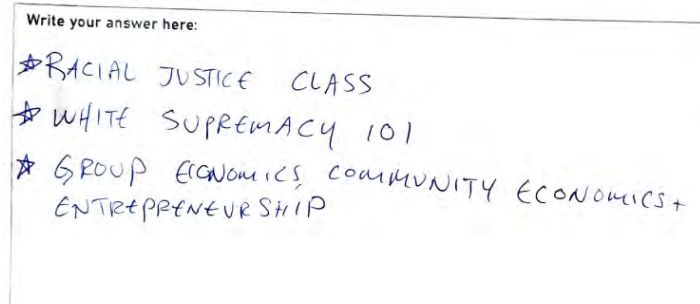 Write your answer here:
☆RACIAL JUSTICE CLASS
☆ WHITE SUPREMACY 101
☆ GROUP ECONOMICS, COMMUNITY ECONOMICS+
ENTREPRENEURSHIP